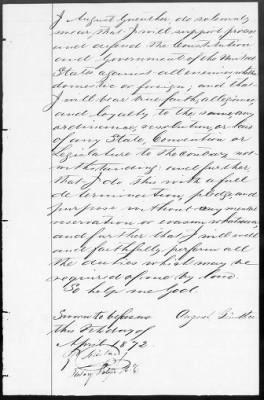 I August Guenther, do solemnly
swear that I will support, protect
and defend the Constitution
and Government of the United
States against all enemies, whether
domestic or foreign; and that
I will bear true faith, allegiance
and loyalty to the same, any
ordinance, resolution or law
of any State, Convention or
Legislature to the contrary not
withstanding: and further
that I do this with a full
determination, pledge and
purpose without any mental
reservation or evasion whatsoever,
and further that I will well
and faithfully perform all
the duties which may be
required of me by law.
So help me God.
Sworn to before me August
this day of
April 1872.